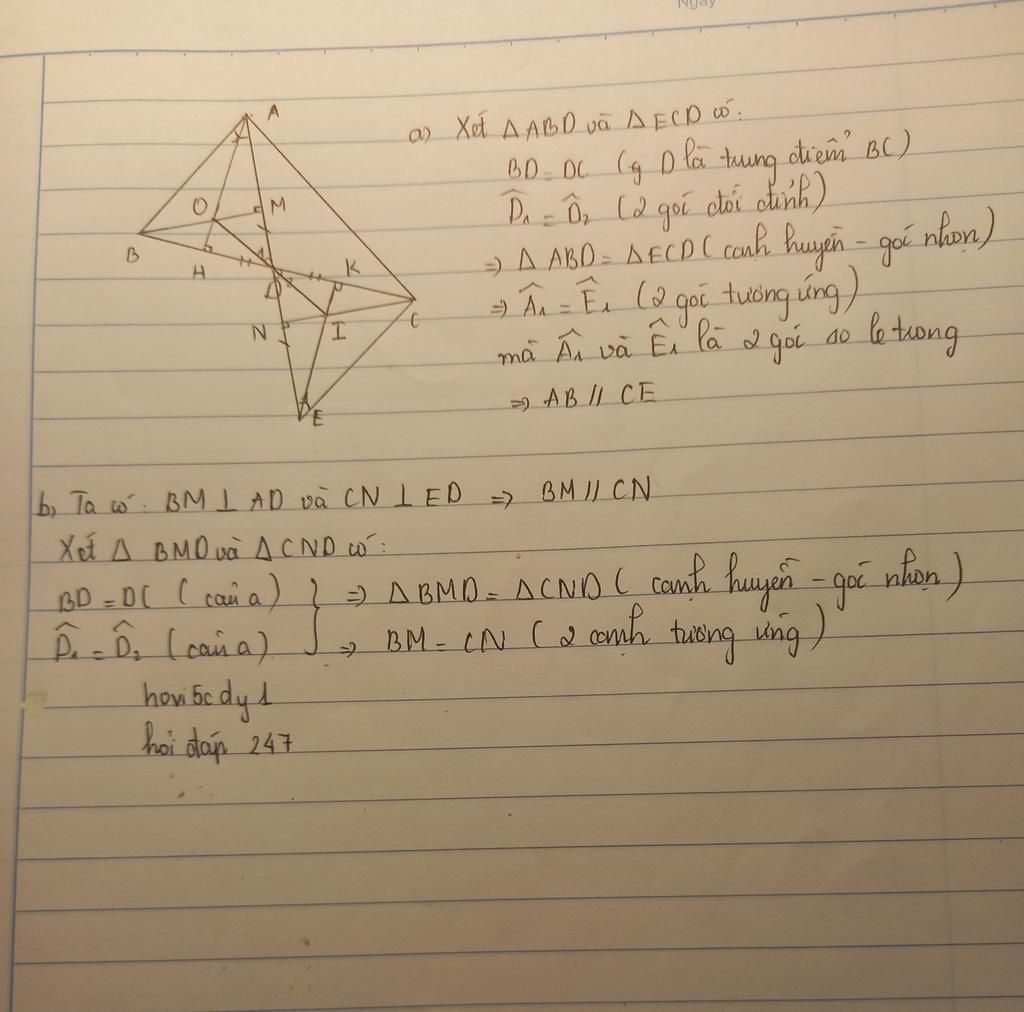 Ngày
A
O
M
B
H
K
D
C
N
I
E
a) Xét △ABD và △ECD có:
BD = DC (g D là trung điểm BC)
D̂₁ = D̂₂ (2 goí đối đỉnh)
=> △ABD = △ECD (cạnh huyền - goí nhọn)
=> Â₁ = Ê₁ (2 goí tương ứng)
mà Â₁ và Ê₁ là 2 goí so le trong
=> AB // CE
b, Ta có: BM ⊥ AD và CN ⊥ ED => BM // CN
Xét △ BMD và △CND có:
BD = DC (câu a) } => △BMD = △CND (cạnh huyền - goí nhọn)
D̂₁ = D̂₂ (câu a) } => BM = CN (2 cạnh tương ứng)
hovi5cdy1
hỏi đáp 247